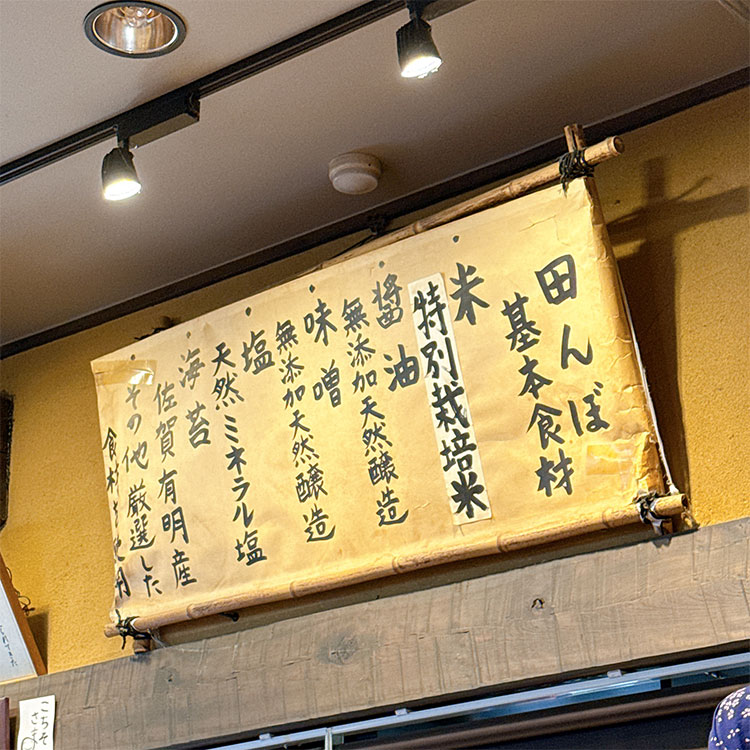 田んぼ
基本食材
米
特別栽培米
醤油
無添加天然醸造
味噌
無添加天然醸造
塩
天然ミネラル塩
海苔
佐賀有明産
その他厳選した
食材を使用
こちそ
さま